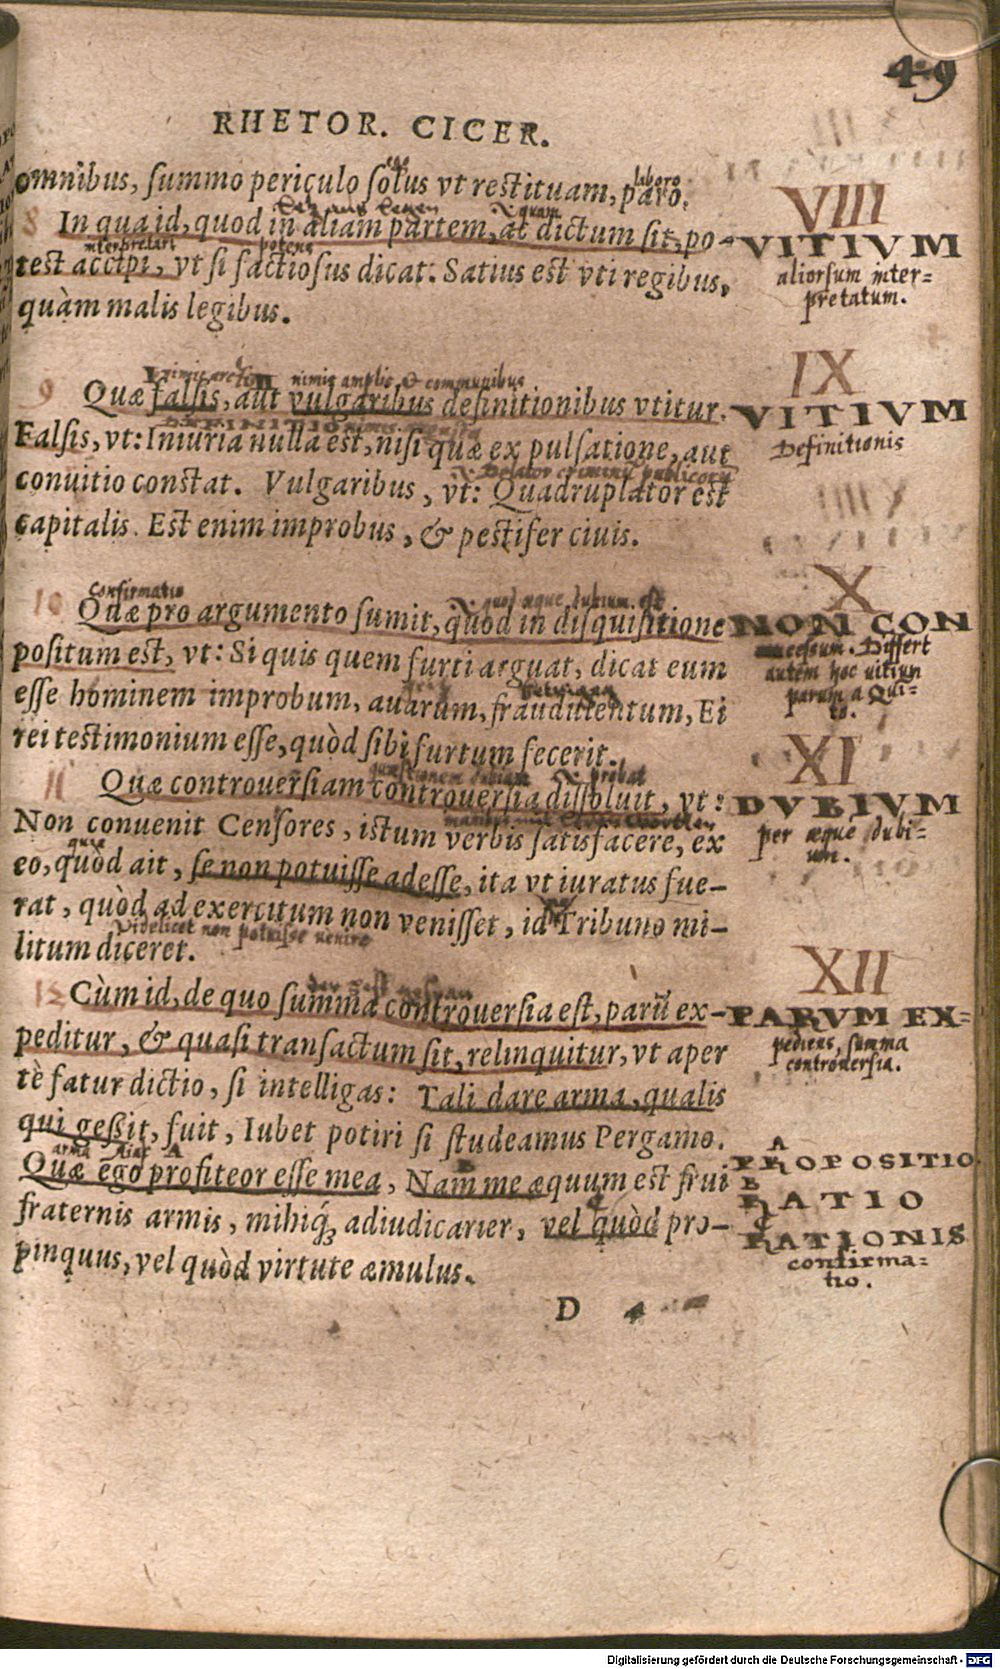 49
RHETOR. CICER.
ego
omnibus, summo periculo solus vt restituam, paro.
laboro
VIII
8 In qua id, quod in aliam partem, ac dictum sit, po-
quam
VITIVM
aliorsum inter-
pretatum.
interpretari
potens
test accipi, vt si factiosus dicat: Satius est vti regibus,
quàm malis legibus.
IX
nimis amplis, & communibus
9 Quæ falsis, aut vulgaribus definitionibus vtitur.
VITIVM
Definitionis
Falsis, vt: Iniuria nulla est, nisi quæ ex pulsatione, aut
Delator criminū publicorū
conuitio constat. Vulgaribus, vt: Quadruplator est
capitalis. Est enim improbus, & pestifer ciuis.
X
Confirmatio
quod æque dubium est
10 Quæ pro argumento sumit, quod in disquisitione
NON CON
cessum. Differt
autem hoc uitium
parum a Qui-
to.
positum est, vt: Si quis quem furti arguat, dicat eum
esse hominem improbum, auarum, fraudulentum, Ei
rei testimonium esse, quòd sibi furtum fecerit.
XI
quæstionem dubiam
probat
11 Quæ controuersiam controuersia dissoluit, vt:
DVBIVM
per æque dubi-
um.
Non conuenit Censores, istum verbis satisfacere, ex
quia
eo, quòd ait, se non potuisse adesse, ita vt iuratus fue-
rat, quòd ad exercitum non venisset, id Tribuno mi-
Videlicet non potuisse uenire
litum diceret.
XII
12 Cùm id, de quo summa controuersia est, parū ex-
PARVM EX-
pediens, summa
controuersia.
peditur, & quasi transactum sit, relinquitur, vt aper
tè fatur dictio, si intelligas: Tali dare arma, qualis
qui geßit, fuit, Iubet potiri si studeamus Pergamo.
arma Aiax A
A
PROPOSITIO
Quæ ego profiteor esse mea, Nam me æquum est frui
B
B
RATIO
fraternis armis, mihiq́; adiudicarier, vel quòd pro-
C
C
RATIONIS
confirma-
tio.
pinquus, vel quòd virtute æmulus.
D 4
Digitalisierung gefördert durch die Deutsche Forschungsgemeinschaft - DFG